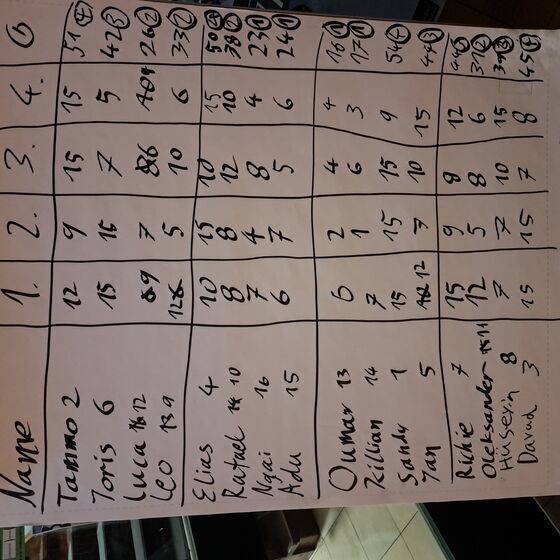 Name 1. 2. 3. 4. G
Tammo 2 12 9 15 15 51 4
Joris 6 15 15 7 5 42 3
Luca 12 9 7 6 4 26 2
Leo 9 12 5 10 6 33 2
Elias 4 10 15 10 15 50
Rafael 10 8 8 12 10 38
Ngai 16 7 4 8 4 23 1
Adu 15 6 7 5 6 24 1
Oumar 13 6 2 4 4 16 1
Kilian 14 7 1 6 3 17 1
Sandy 1 15 15 15 9 54 4
Jan 5 12 7 10 15 44 3
Richie 7 15 9 8 12 44
Oleksander 11 12 5 8 6 31 2
Hüseyin 8 7 7 10 15 39
Davud 3 15 15 7 8 45 4